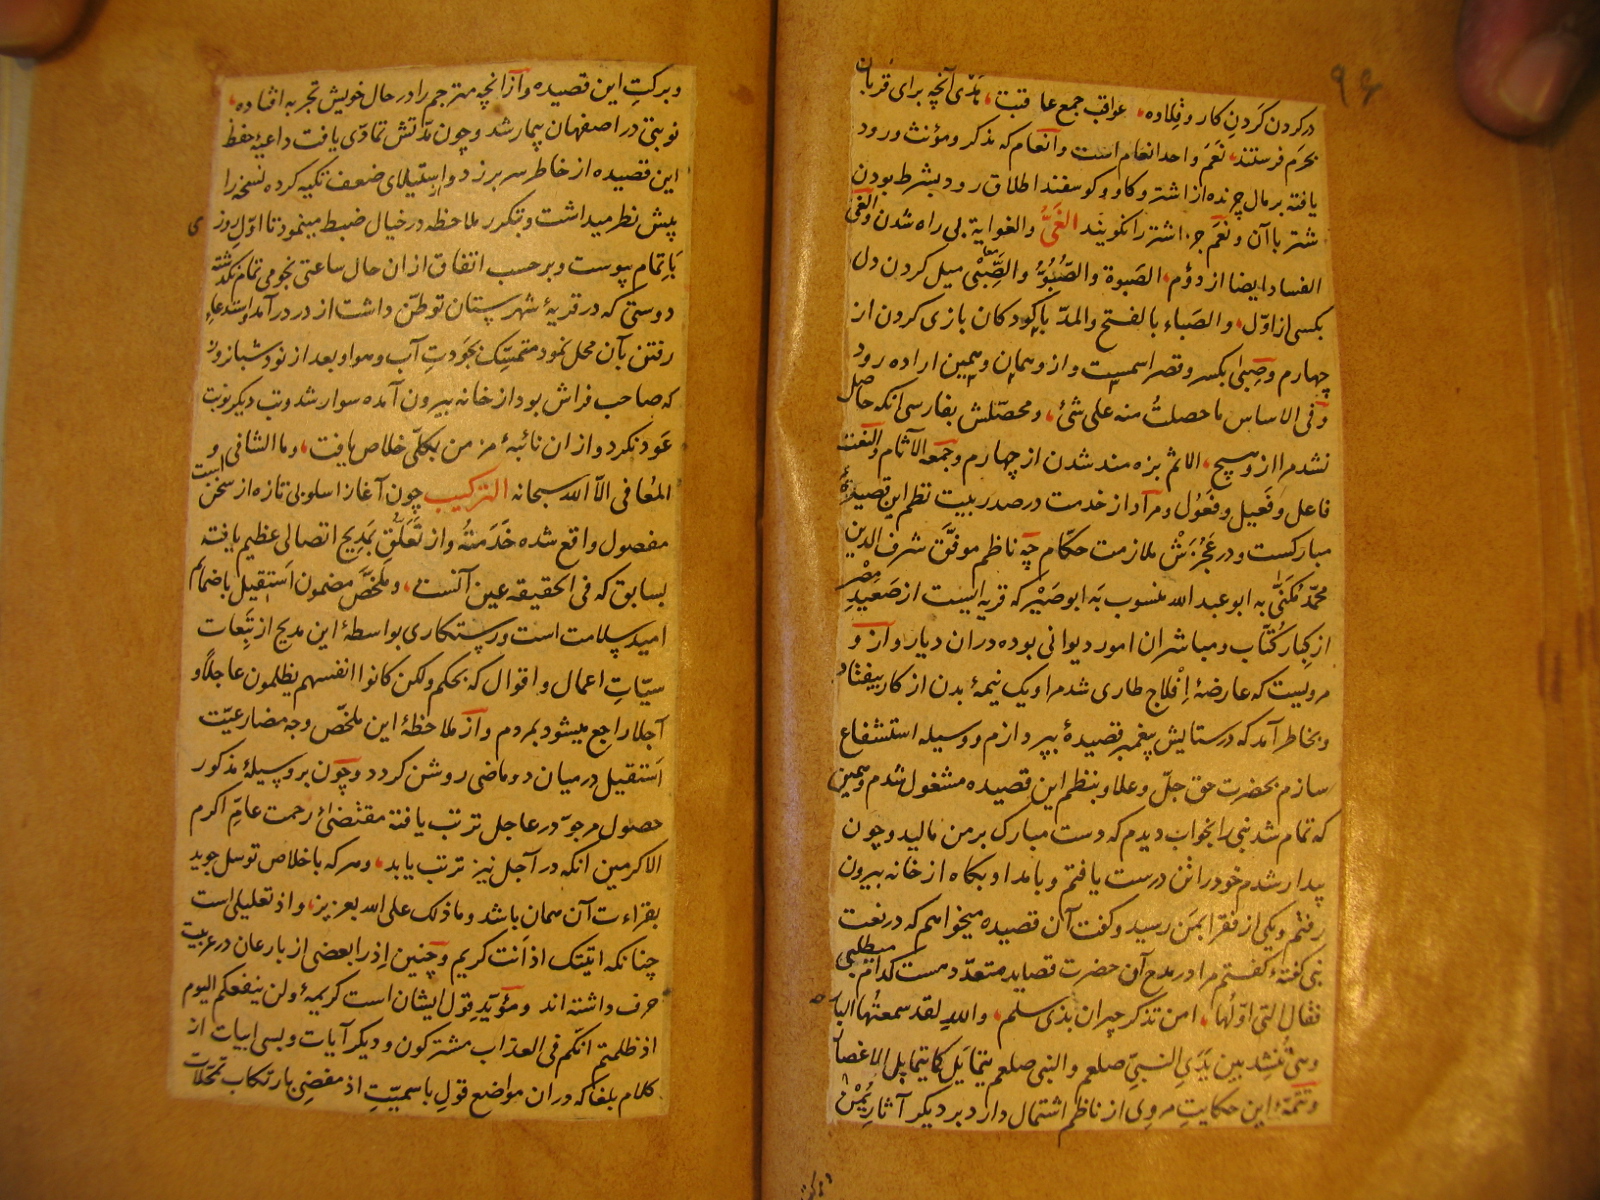 ۹۶
در کردن کردنِ کار و قِلاده، عواقب جمع عاقبت، هَدْی آنچه برای قربان
بحرَم فرستند، نَعَم واحد انعام است و اَنعام که مذکر و مؤنث ورود
یافته بر مال چرنده از اشتر و کاو و کوسفند اطلاق رود بشرط بودن
شتر با آن و نعَم جز اشتر را نکویند الغَیُّ والغوایة بی راه شدن والغی
الفساد ایضا از دوُم، الصَبوة والصُبُوُّ والصِّبْی میل کردن دل
بکسی از اوّل، والصَباء بالفتح والمدّ با کودکان بازی کردن از
چهارم وصِبیٰ بکسر وقصر اسمیست و از و همان و همین اراده رود
وفی الاساس ما حصلتُ منه علی شئ، ومحصّلش بفارسی انکه حاصل
نشد مرا از و هیچ، الاثم بزه مند شدن از چهارم وجمعه الآثام والنعت
فاعل وفَعیل وفَعُول ومراد از خدمت در صدر بیت نظم این قصیدهٔ
مبارکست و در عَجُزَش ملازمت حکّام چه ناظم موفّق شرف الدین
محمّد مُکَنّی به ابو عبد الله منسوب به ابوصَیْر که قریه ایست از صَعیدِ مصر
از کِبار کُتّاب و مباشران امور دیوانی بوده در ان دیار و از و
مرویست که عارضهٔ اِفْلاج طاری شد مرا و یک نیمهٔ بدن از کار بیفتاد
و بخاطر آمد که در ستایش پیغمبر قصیدهٔ بپردازم و وسیله استشفاع
سازم بحضرت حق جلّ وعلا و بنظم این قصیده مشغول شدم و همین
که تمام شد نبی را بخواب دیدم که دست مبارک بر من مالید و چون
بیدار شدم خود را تن درست یافتم و بامداد بکاه از خانه بیرون
رفتم و یکی از فقرا بمن رسید و کفت آن قصیده میخواهم که در نعت
نبی کفتهٔ کفتم مرا در مدح آن حضرت قصاید متعدّد هست کدام میطلبی
فقال التی اوّلُها، امن تذکر جیران بذی سلم، والله لقد سمعتُها البارحه
وهی تُنشَد بین یَدَیِ النبیّ صلعم والنبی صلعم یتمایَل کما یتمایل الاغصان
وتتمّهٔ این حکایتِ مروی از ناظم اشتمال دارد بر دیکر آثار یُمْن
و برکتِ این قصیده و از انچه مترجم را در حال خویش تجربه افتاده،
نوبتی در اصفهان بیمار شد و چون مدّتش تمادّی یافت داعیهٔ حفظ
این قصیده از خاطر سر بر زد و استیلای ضعف تکیه کرده نسخه را
پیش نظر میداشت و بتکرر ملاحظه در خیال ضبط مینمود تا اوّل روزی
باِتمام پیوست و بر حسب اتفاق از ان حال ساعتی نجومی تمام نکذشته
دوستی که در قریهٔ شهرستان توطّن داشت از در در آمد و استدعای
رفتن بآن محل نمود متمسّک بجَودتِ آب و هوا و بعد از نود شبانروز
که صاحب فراش بود از خانه بیرون آمده سوار شد و تب دیکر نوبت
عَود نکرد و از ان نائبهٔ مزمن بکلّی خلاص یافت، وما الشافی و
المعُافی الّا الله سبحانه الترکیب چون آغاز اسلوبی تازه از سخن است
مفصول واقع شده خَدَمتُه و از تَعَلُّق بَمدِیح اتصالی عظیم یافته
بسابق که فی الحقیقه عین آنست، و ملخّصَ مضمون اَستقیل باضمائم
امید سلامت است و رستکاری بواسطهٔ این مدیح از تَبِعات
سیّاتِ اعمال و اقوال که بحکم ولکن کانوا انفسهم یظلمون عاجلاً و
آجلا راجع میشود بمردم و از ملاحظهٔ این ملخّص وجه مضارعیّت
اَستقیل در میان دو ماضی روشن کردد و چون بر وسیلهٔ مذکور
حصول مرجوّ در عاجل ترتب یافته مقتضیٰ رحمت عامِّ اکرم
الاکرمین انکه در آجل نیز ترتب یابد، و هر که باخلاص توسل جوید
بقراءت آن همان باشد وما ذلک علی الله بعزیز، و اذ تعلیلی است
چنانکه اتیتک اذ اَنت کریم و چنین اِذ را بعضی از بارعان در عربیت
حرف داشته اند ومؤیّدِ قول ایشان است کریمهٔ ولن ینفعکم الیوم
اذ ظلمتم انکّم فی العذاب مشترکون و دیکر آیات و بسی ابیات از
کلام بلغا که در ان مواضع قولِ باسمیّتِ اذ مفضی بارتکاب تمحّلات